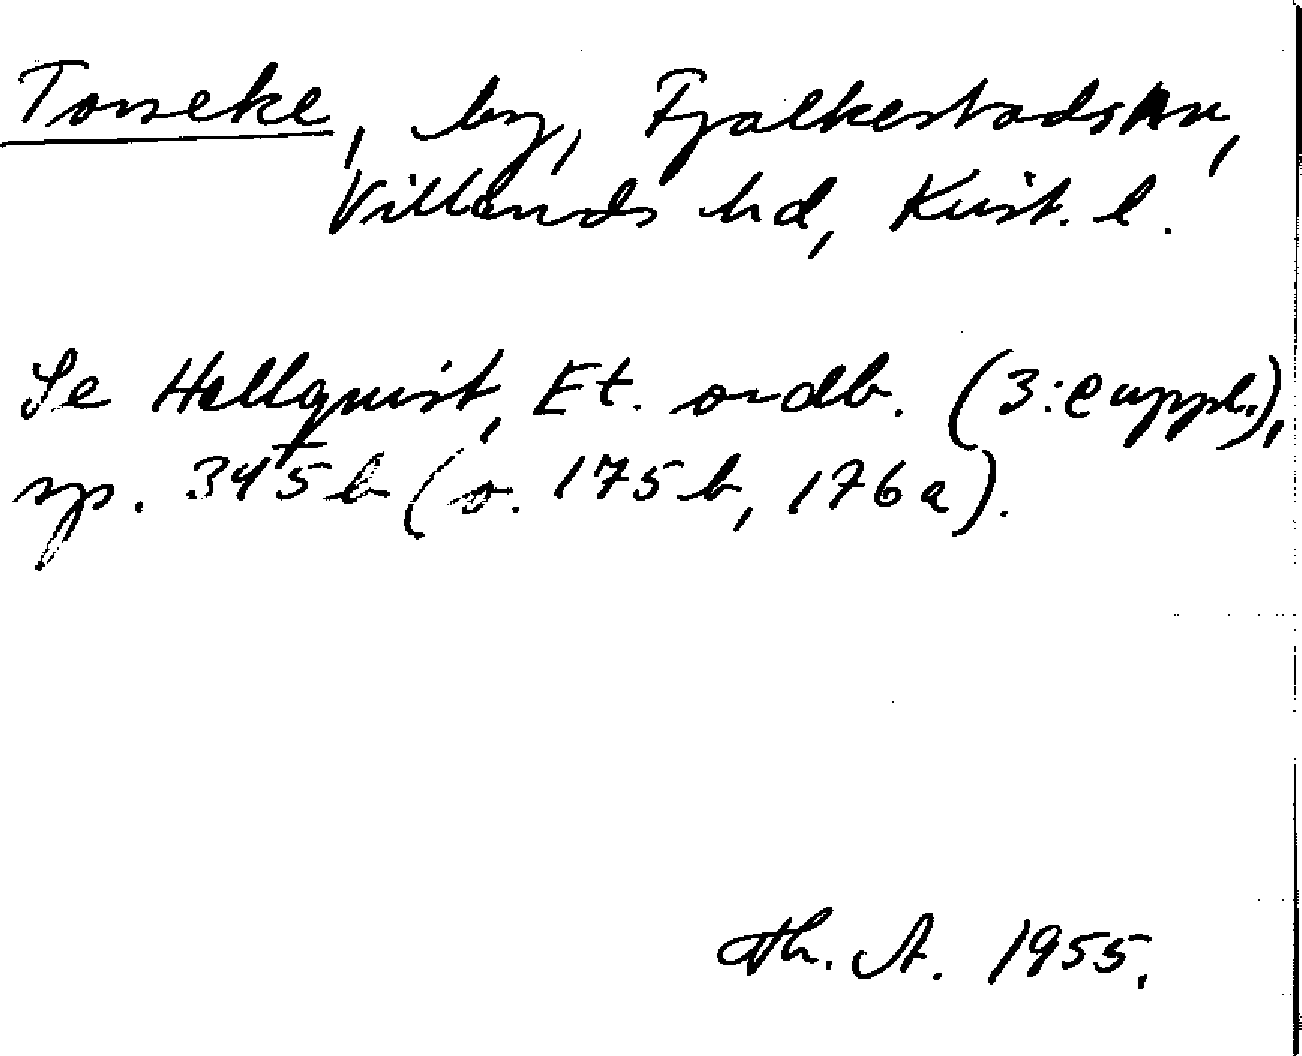 Torseke, by, Fjälkestads sn,
Villands hd, Krist. l.
Se Hellquist, Et. ordb. (3:e uppl.),
sp. 345 b (o. 175 b, 176 a).
Th. A. 1955.